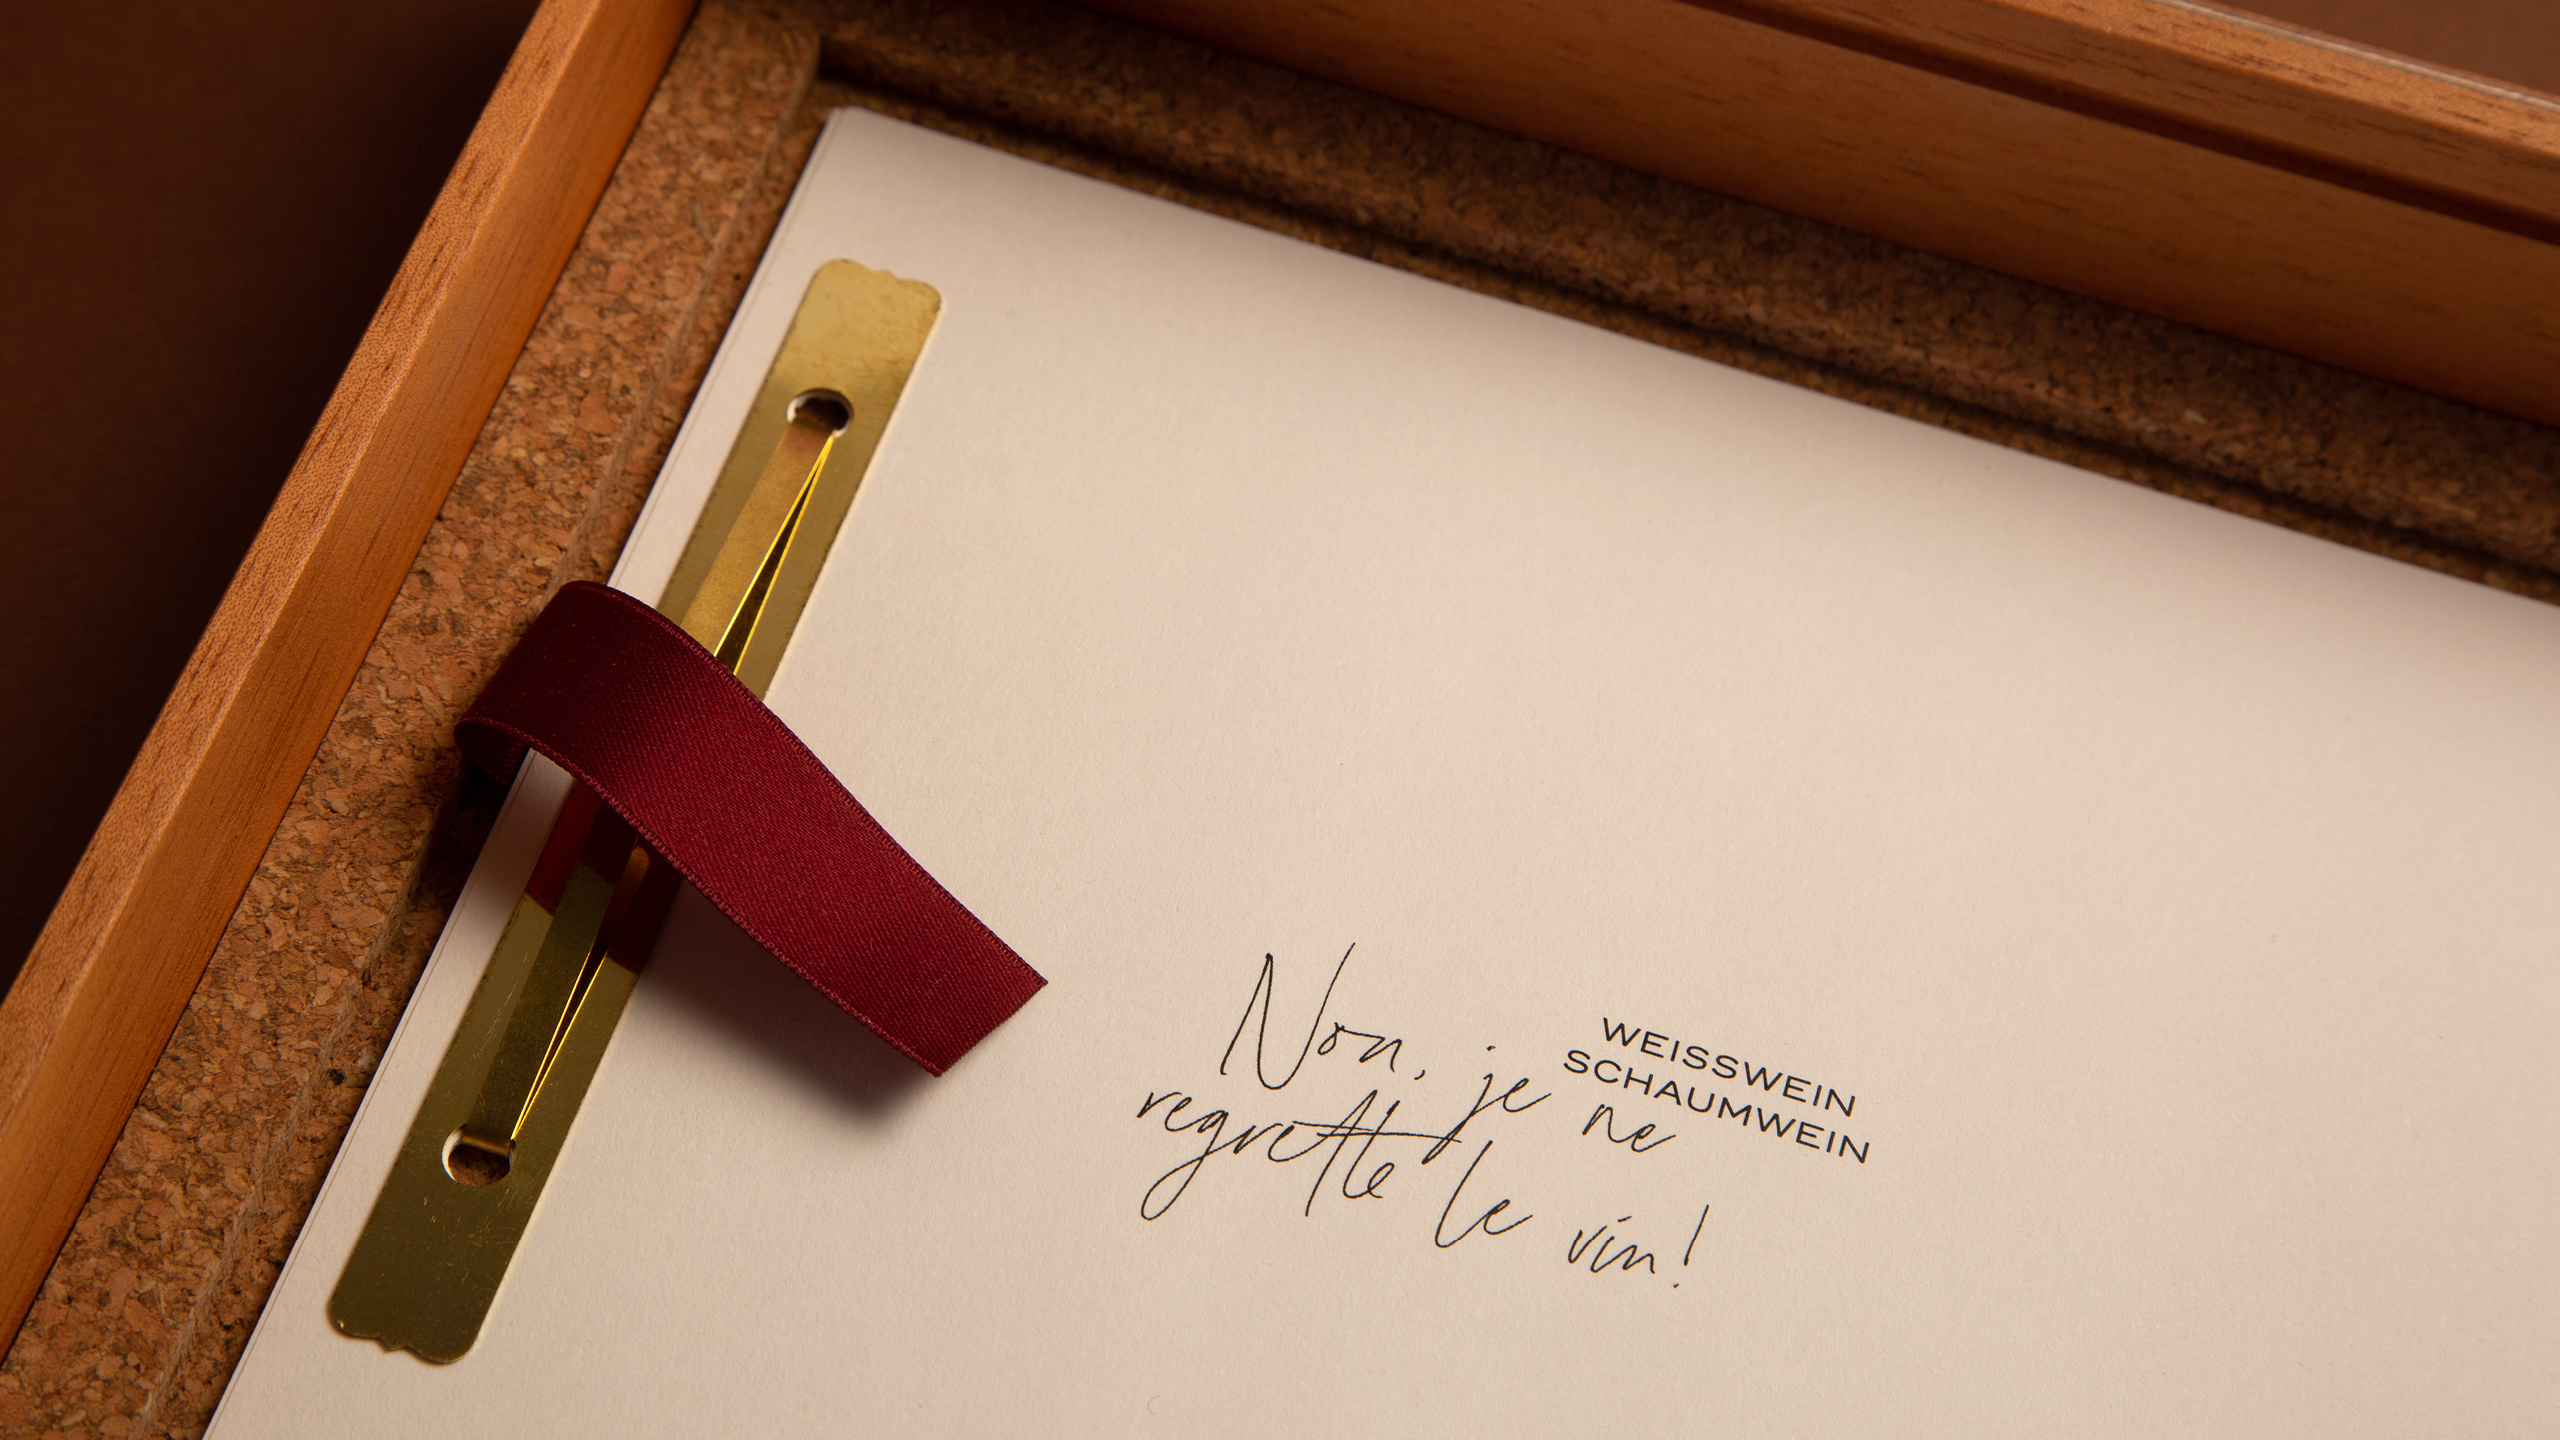 WEISSWEIN
SCHAUMWEIN
Non, je ne
regrette le vin!